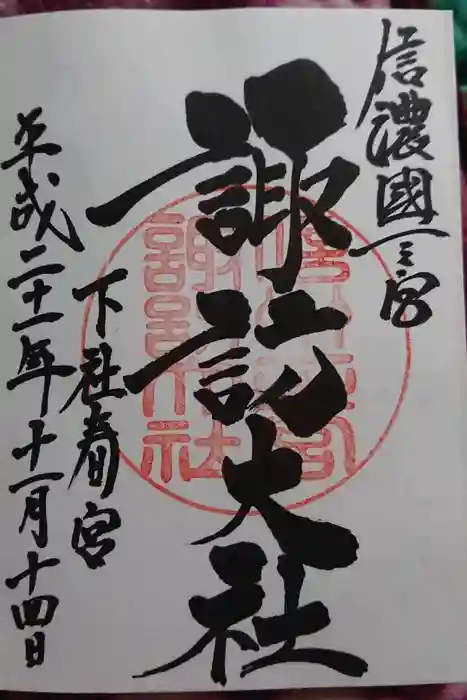 信濃國一之宮
諏訪大社
下社春宮
平成二十一年十一月十四日